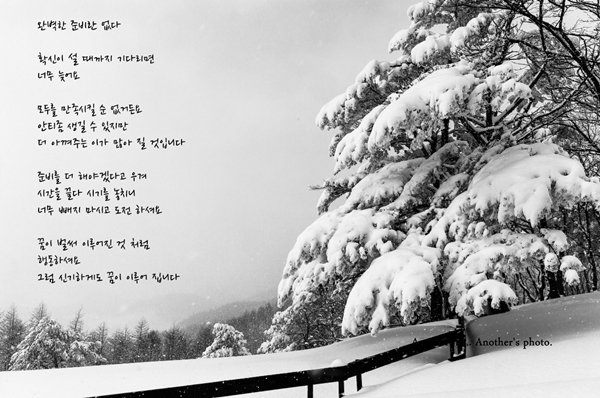 완벽한 준비란 없다
확신이 설 때까지 기다리면
너무 늦어요
모두를 만족시킬 순 없거든요
안티좀 생길 수 있지만
더 아껴주는 이가 많아 질 것입니다
준비를 더 해야겠다고 우겨
시간을 끌다 시기를 놓치니
너무 빼지 마시고 도전 하셔요
꿈이 벌써 이루어진 것 처럼
행동하셔요
그럼 신기하게도 꿈이 이루어 집니다
Another's photo.